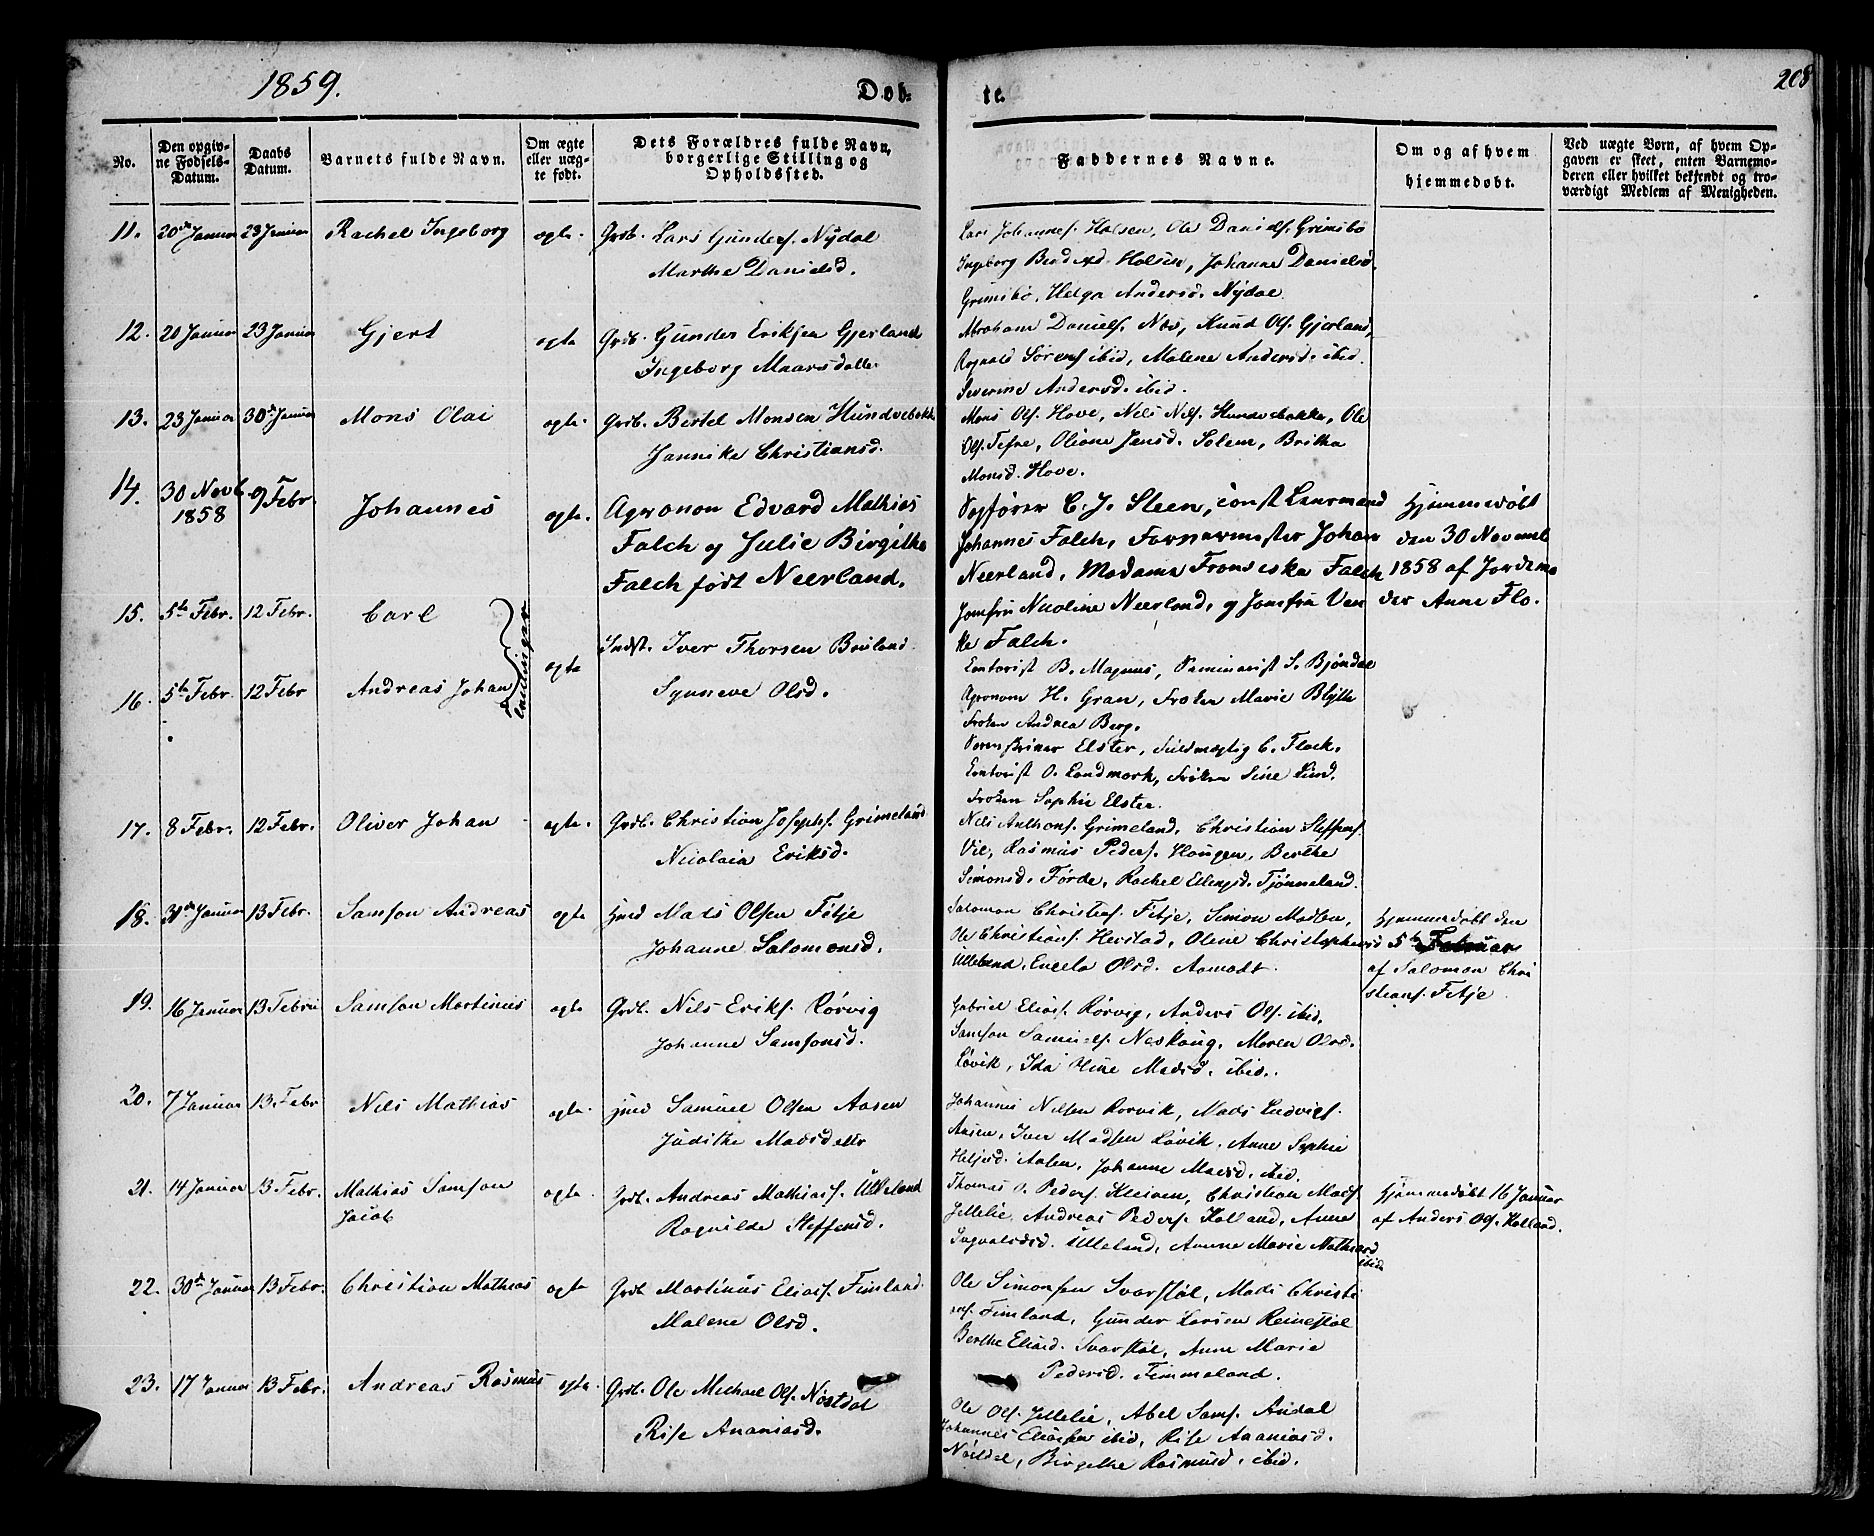 1859.
Døb-
te.
208
No.
Den opgiv-
ne Fødsels-
Datum.
Daabs
Datum.
Barnets fulde Navn.
Om ægte
eller uæg-
te født.
Dets Forældres fulde Navn,
borgerlige Stilling og
Opholdssted.
Faddernes Navne.
Om og af hvem
hjemmedøbt.
Ved uægte Børn, af hvem Op-
gaven er skeet, enten Barnemo-
deren eller hvilket bekjendt og tro-
værdigt Medlem af Menigheden.
11. 20de Januar 23 Januar Rachel Ingeborg ægte. Grdb. Lars Gunders. Nydal
Marthe Danielsd.
Lars Johannes. Holsen, Ole Daniels. Grimsbø
Ingeborg Holsen, Johanne Danielsd.
Grimsbø, Helga Andersd. Nydal
12. 20 Januar 23 Januar Gjert ægte Grdb. Gunder Eriksen Gjerland
Ingeborg Maarsdatter
Abraham Daniels. Næs, Knud Ols. Gjerland,
Rognald Sørens. ibid, Malene Andersd. ibid.
Severine Andersd. ibid.
13. 23 Januar 30te Januar Mons Olai ægte. Grdb. Bertel Monsen Hundvebakke
Jannike Christiansd.
Mons Ols. Hove, Nels Nels. Hundvebakke, Ole
Ols. Tefre, Oliane Jensd. Solem, Britha
Monsd. Hove.
14. 30 Novb. 1858 9 Febr. Johannes ægte. Agronom Edvard Mathias
Falch og Julie Birgithe
Falch født Neerland.
Sagfører C. J. Steen, const Lensmand
Johannes Falch, Farvermester Johan
Neerland, Madame Fransiska Falch
Jomfru Nicoline Neerland, og Jomfru Ven
ke Falch.
Hjemmedøbt
den 30 Novemb.
1858 af Jordemo
der Anne Flo.
15. 5te Febr. 12 Febr. Carl
16. 5te Febr. 12 Febr Andreas Johan
Tvillinger
ægte
Indst. Iver Thorsen Bruland.
Synneve Olsd.
Contorist B. Magnus, Seminarist S. Bjøndal
Agronom H. Gran, Frøken Marie Blytt
Frøken Andrea Berg.
Sorenskriver Elster, Fuldmægtig C. Flock.
Contorist O. Landmark, Frøken Sine Lund.
Frøken Sophie Elster.
17. 8 Febr. 12 Febr. Oliver Johan ægte. Grdb. Christian Josephs. Grimeland
Nicolaia Eriksd.
Nils Anthons. Grimeland, Christian Steffens.
Vie, Rasmus Peders. Hougen, Berthe
Simonsd. Førde, Rachel Ellingsd. Tjønneland.
18. 31te Januar 13 Febr. Samson Andreas ægte Hmd Mads Olsen Fitje
Johanne Salomonsd.
Salomon Christens. Fitje, Simon Madsen,
Ole Christians. Herstad, Oline Christophersd
Ulleland, Olsd. Aamodt.
Hjemmedøbt den
5te Februar
af Salomon Chri
stians. Fitje
19. 16 Januar 13 Februar Samson Martinus ægte Grdb. Nils Eriks. Rørvig
Johanne Samsonsd.
Gabriel Elias. Rørvig, Anders Ols. ibid,
Samson Samuels. Neskaug, Maren Olsd.
Løvik, Ida Oline Madsd. ibid.
20. 7 Januar 13 Febr Nils Mathias ægte. Hmd Samuel Olsen Aasen
Judithe Madsdatter
Johannes Nilsen Rørvik, Mads Ludvigs.
Aasen, Iver Madsen Løvik, Anne Sophie
Aasen, Johanne Madsd. ibid.
21. 14 Januar 13 Febr. Mathias Samson
Jacob
ægte Grdb. Andreas Mathias. Ulleland
Ragnilde Steffensd.
Thomas O. Peders. Kleiven, Christian Mads
Jellelie, Andreas Peders. Holland, Anne
Ingvalsdsd. Ulleland, Anne Marie Mathiasd
ibid.
Hjemmedøbt 16 Januar
af Anders Ols. Holland.
22. 30te Januar 13 Febr. Christian Mathias ægte Grdb. Martinus Elias. Fimland.
Malene Olsd.
Ole Simonsen Svarstøl, Mads Christi
ans. Fimland, Gunder Larsen Reinestøl
Berthe Eliasd. Svarstøl, Anne Marie
Pedersd. Fimmeland.
23. 17 Januar 13 Febr. Andreas Rasmus ægte. Grdb. Ole Michael Ols. Nøstdal
Rise Ananiasd.
Ole Ols. Jellelie, Abel Sams. Andal
Johannes Eliassen ibid, Rise Ananiasd.
Nøstdal, Birgethe Rasmusd. ibid.